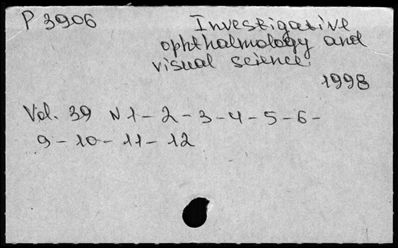 P 3906 Investigative
ophthalmology and
visual science.
1998
Vol. 39 N 1 - 2 - 3 - 4 - 5 - 6 -
9 - 10 - 11 - 12